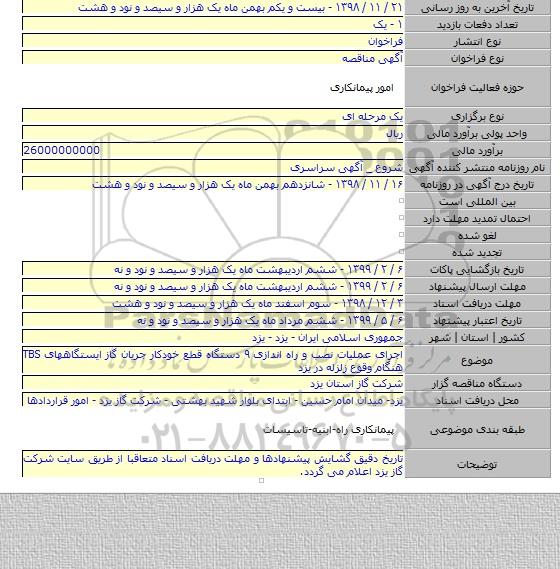 تاریخ آخرین به روز رسانی ۲۱ / ۱۱ / ۱۳۹۸ - بیست و یکم بهمن ماه یک هزار و سیصد و نود و هشت
تعداد دفعات بازدید ۱ - یک
نوع انتشار فراخوان
نوع فراخوان آگهی مناقصه
حوزه فعالیت فراخوان امور پیمانکاری
نوع برگزاری یک مرحله ای
واحد پولی برآورد مالی ریال
برآورد مالی 26000000000
نام روزنامه منتشر کننده آگهی شروع _ آگهی سراسری
تاریخ درج آگهی در روزنامه ۱۶ / ۱۱ / ۱۳۹۸ - شانزدهم بهمن ماه یک هزار و سیصد و نود و هشت
بین المللی است
احتمال تمدید مهلت دارد
لغو شده
تجدید شده
تاریخ بازگشایی پاکات ۶ / ۲ / ۱۳۹۹ - ششم اردیبهشت ماه یک هزار و سیصد و نود و نه
مهلت ارسال پیشنهاد ۶ / ۲ / ۱۳۹۹ - ششم اردیبهشت ماه یک هزار و سیصد و نود و نه
مهلت دریافت اسناد ۳ / ۱۲ / ۱۳۹۸ - سوم اسفند ماه یک هزار و سیصد و نود و هشت
تاریخ اعتبار پیشنهاد ۶ / ۵ / ۱۳۹۹ - ششم مرداد ماه یک هزار و سیصد و نود و نه
کشور | استان | شهر جمهوری اسلامی ایران - یزد - یزد
موضوع اجرای عملیات نصب و راه اندازی ۹ دستگاه قطع خودکار جریان گاز ایستگاههای TBS
هنگام وقوع زلزله در یزد
دستگاه مناقصه گزار شرکت گاز استان یزد
محل دریافت اسناد یزد- میدان امام حسین - ابتدای بلوار شهید بهشتی - شرکت گاز یزد - امور قراردادها
طبقه بندی موضوعی پیمانکاری راه-ابنیه-تاسیسات
توضیحات تاریخ دقیق گشایش پیشنهادها و مهلت دریافت اسناد متعاقبا از طریق سایت شرکت
گاز یزد اعلام می گردد.
۰۲۱-۸۸۳۴۹۶۷۰-۵